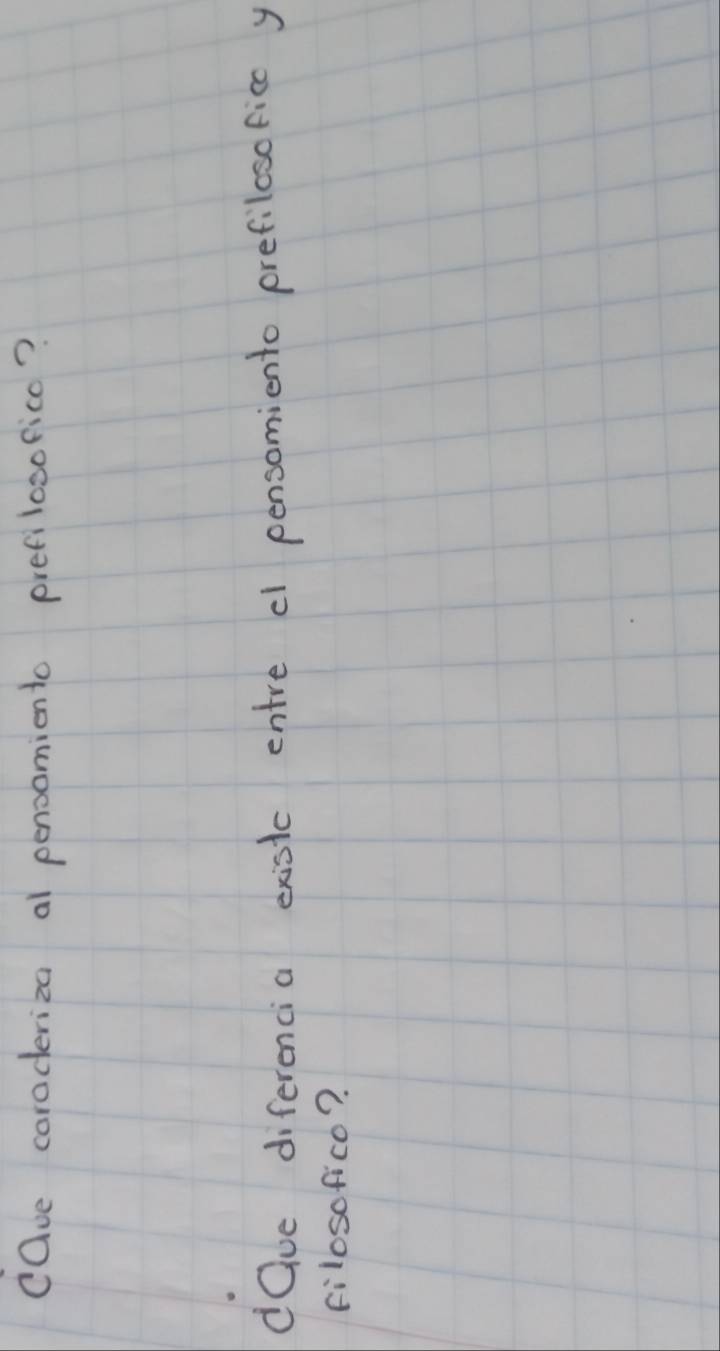 ¿Que caracteriza al pensamiento prefilosofico?
¿Que diferencia existe entre el pensamiento prefilosofico y
filosofico?